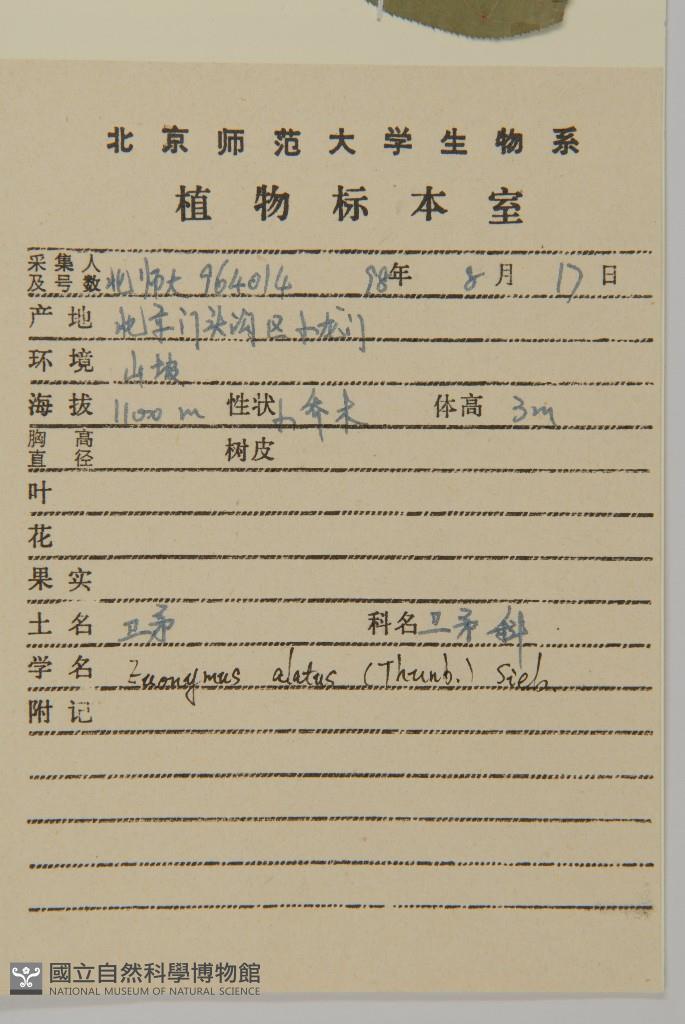 北京师范大学生物系
植物标本室
采集人及号数 北师大 964014 98年 8月 17日
产地 北京门头沟区小龙门
环境 山坡
海拔 1100 m 性状 小乔木 体高 3m
胸高直径 树皮
叶
花
果实
土名 卫矛 科名 卫矛科
学名 Euonymus alatus (Thunb.) Sieb.
附记
國立自然科學博物館
NATIONAL MUSEUM OF NATURAL SCIENCE